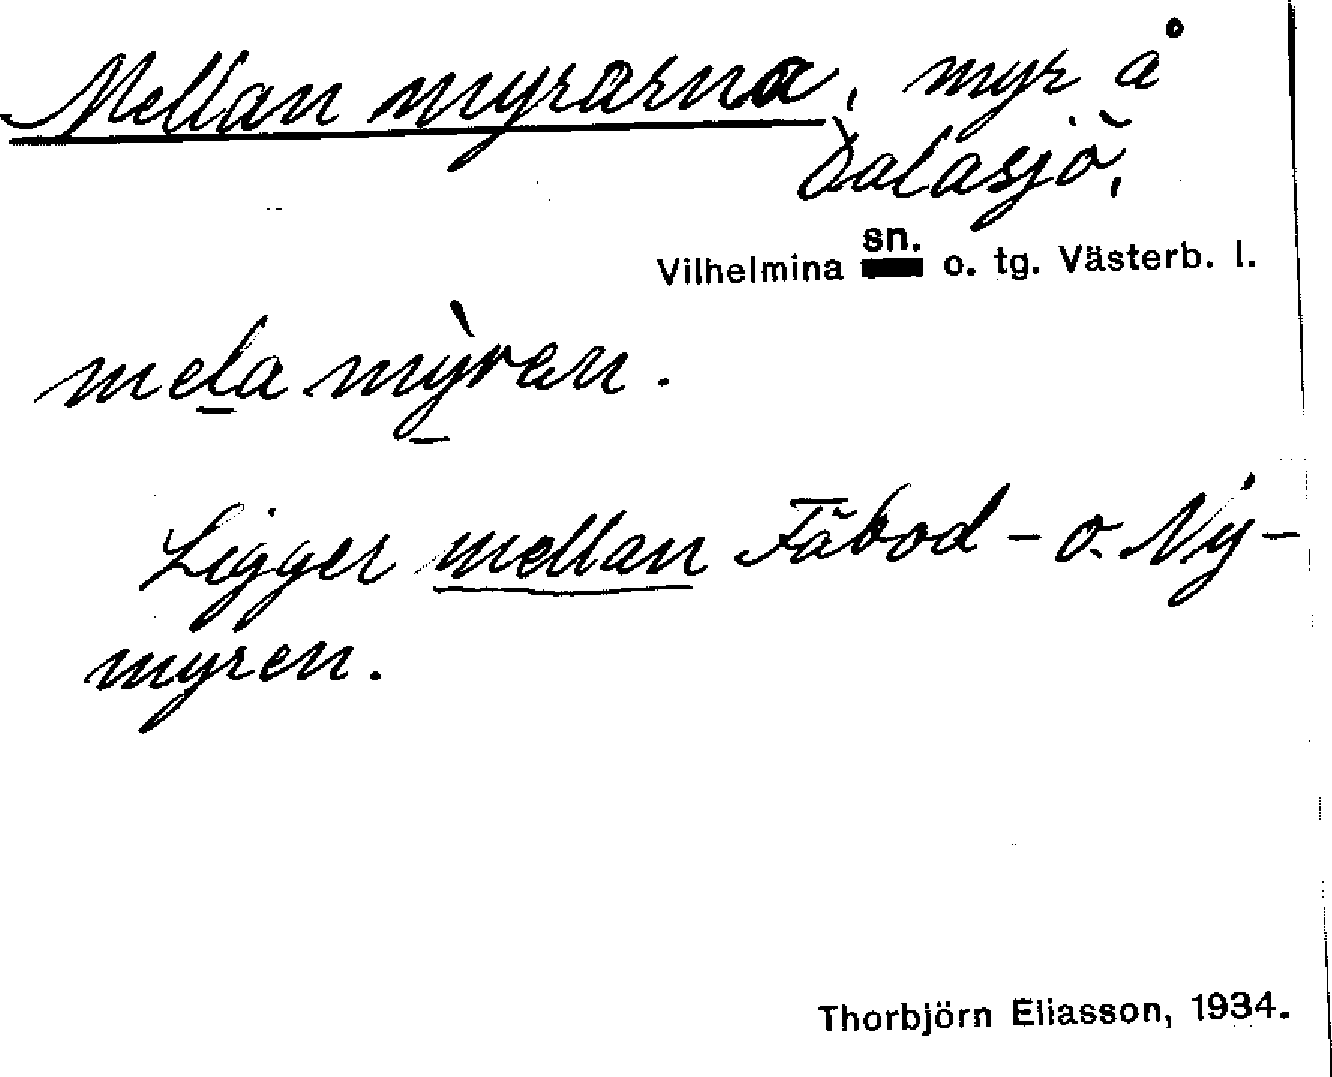 Mellan myrarna, myr å
Dalasjö,
sn.
Vilhelmina o. tg. Västerb. l.
mela mỳren.
Ligger mellan Fäbod- o. Ny-
myren.
Thorbjörn Eliasson, 1934.